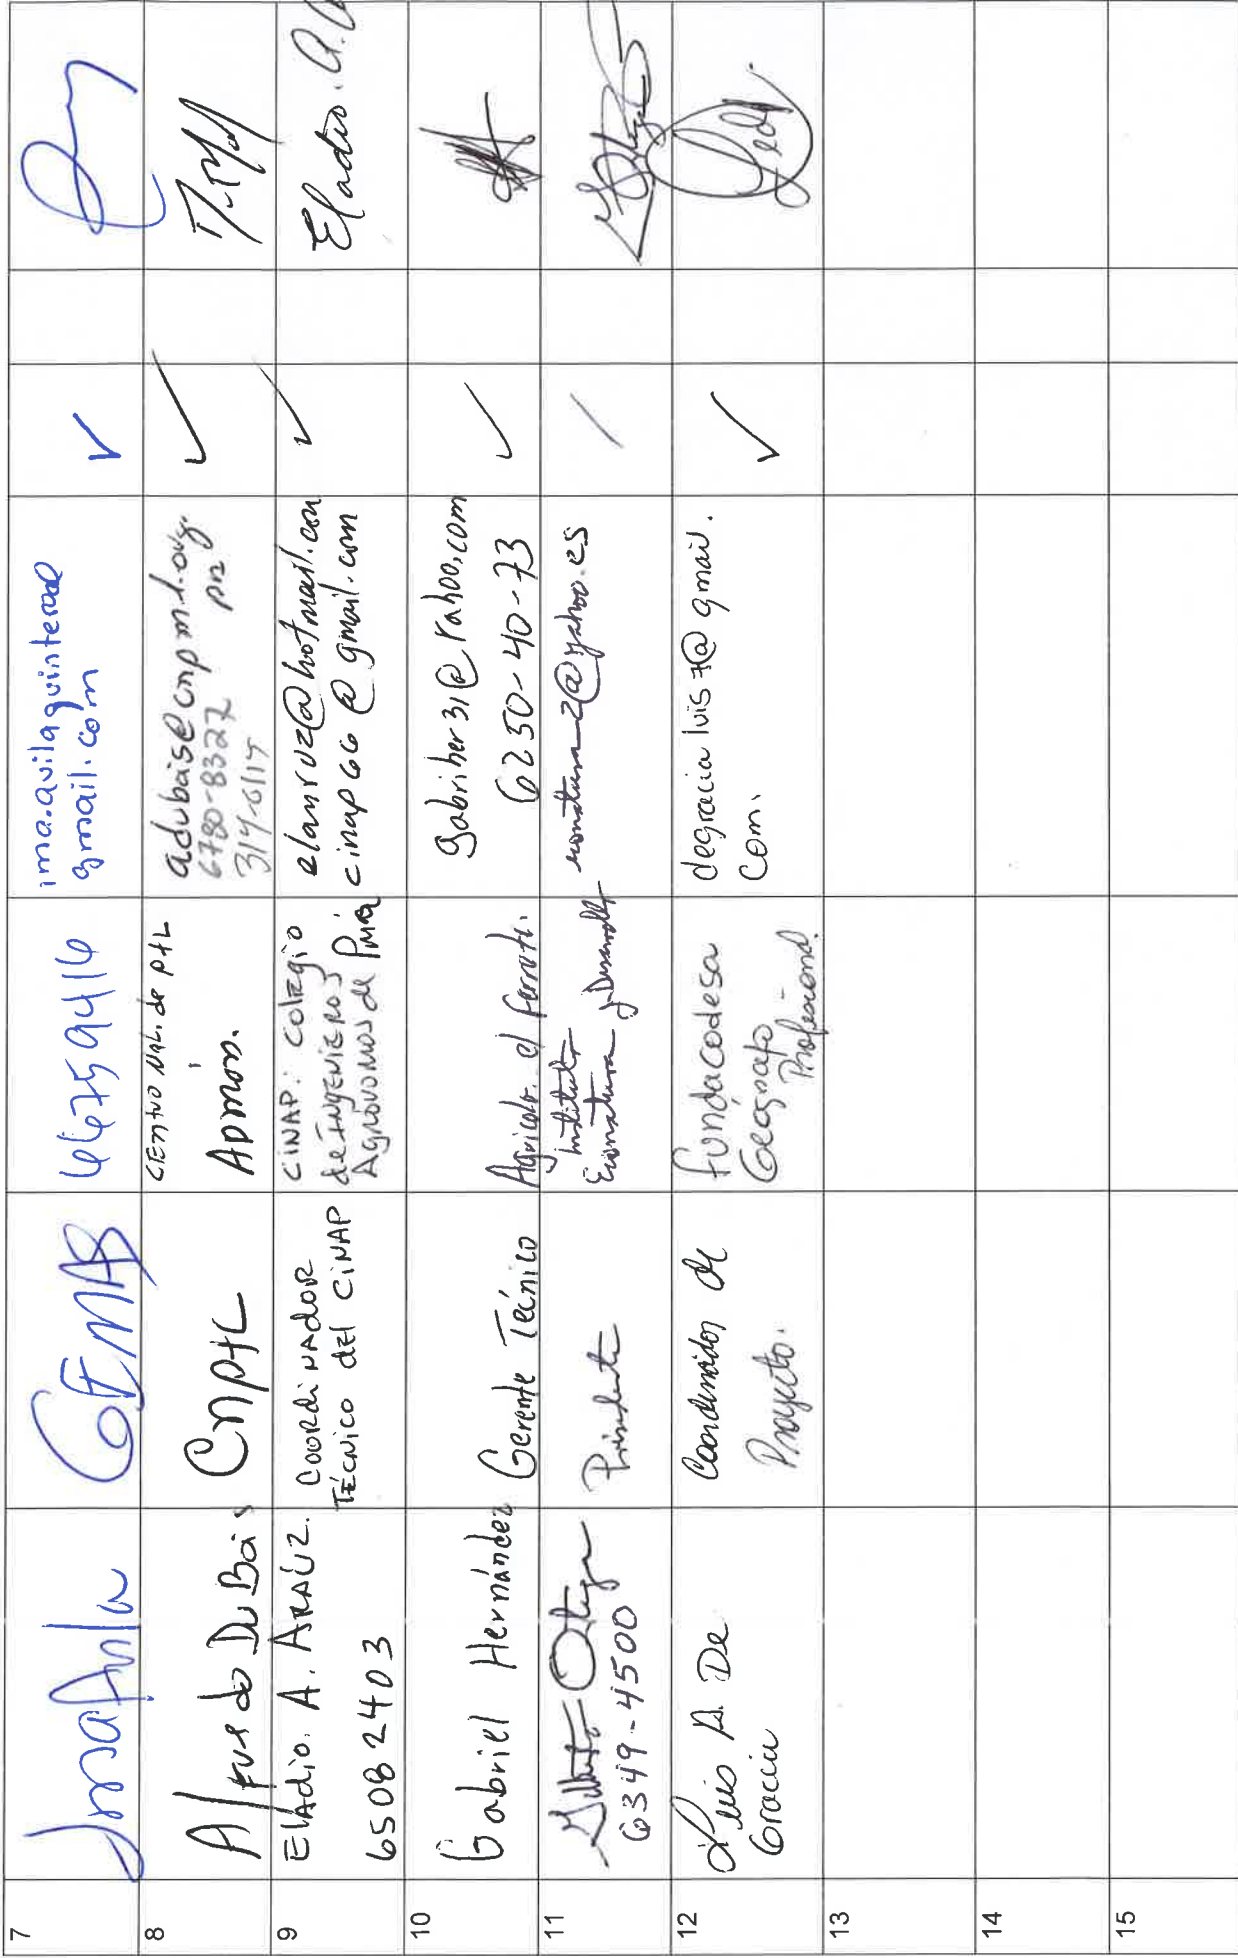 7
Ima Avila
GEMAS
66759416
ima.avilaquintero@
gmail.com
8
Alfredo Du Bois
CNP+L
CENTRO NAL. de P+L
Admón.
adubois@cnpml.org.
pa
6780-8322
314-6115
9
Eladio. A. ARAÚZ.
65082403
COORDINADOR
TÉCNICO DEL CINAP
CINAP: Colegio
de INGENIEROS
AGRÓNOMOS de Pmá
elanruz@hotmail.com
cinap66@gmail.com
Eladio. A. A
10
Gabriel Hernández
Gerente Técnico
Agrícola. el
gabriher31@Yahoo.com
6250-40-73
11
Gilberto Ortega
6349-4500
Presidente
Instituto
Econatura y Desarrollo
econatura_2@yahoo.es
12
Luis A. De
Gracia
Coordinador de
Proyecto.
Fundacodesa
Geógrafo
Profesional.
degracialuis7@gmail.
com.
13
14
15